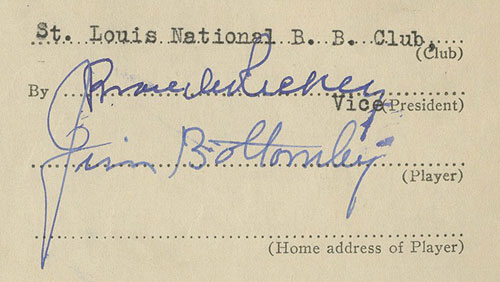 St. Louis National B. B. Club,
(Club)
By Branch Rickey
Vice (President)
Jim Bottomley
(Player)
(Home address of Player)